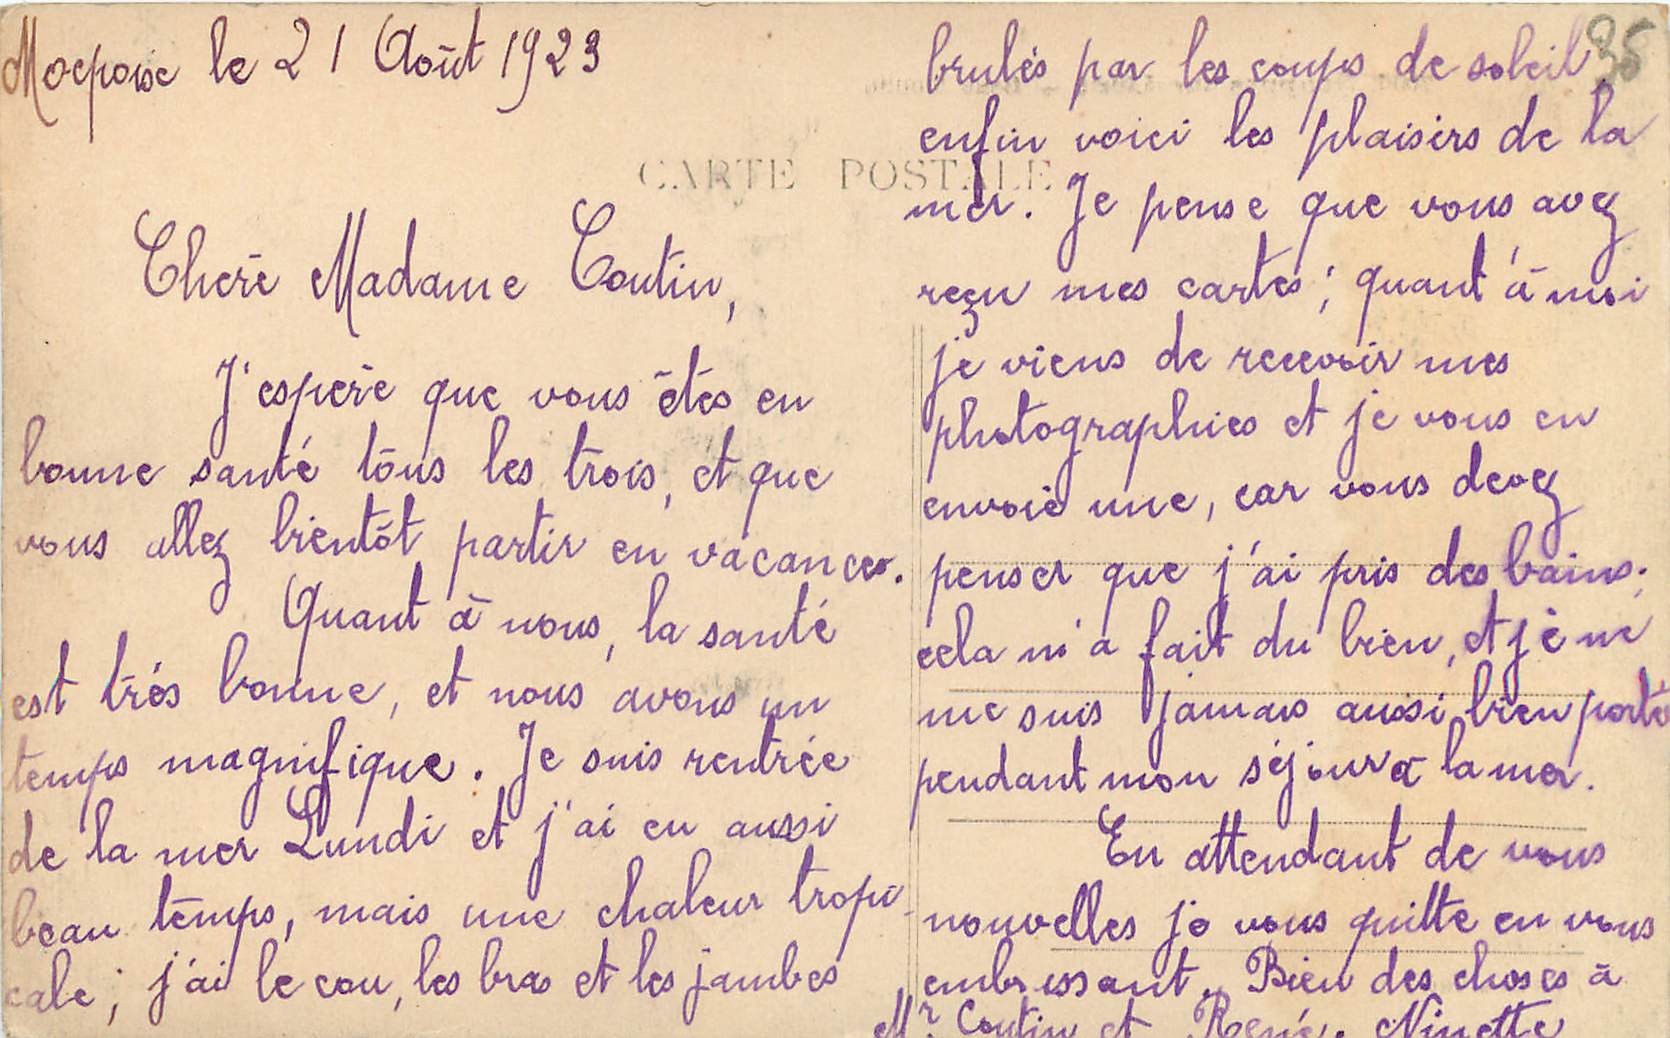 le 21 Août 1923
35
CARTE POSTALE
Chère Madame Coutin,
J'espère que vous êtes en
bonne santé tous les trois, et que
vous allez bientôt partir en vacances.
Quant à nous, la santé
est très bonne, et nous avons un
temps magnifique. Je suis rentrée
de la mer Lundi et j'ai eu aussi
beau temps, mais une chaleur tropi-
cale; j'ai le cou, les bras et les jambes
brulés par les coups de soleil
enfin voici les plaisirs de la
mer. Je pense que vous avez
reçu mes cartes; quant à moi
je viens de recevoir mes
photographies et je vous en
envoie une, car vous devez
penser que j'ai pris des bains;
cela m'a fait du bien, et je ne
me suis jamais aussi bien porté
pendant mon séjour à la mer.
En attendant de vous
nouvelles je vous quitte en vous
embrassant. Bien des choses à
Mr. Coutin et René. Ninette